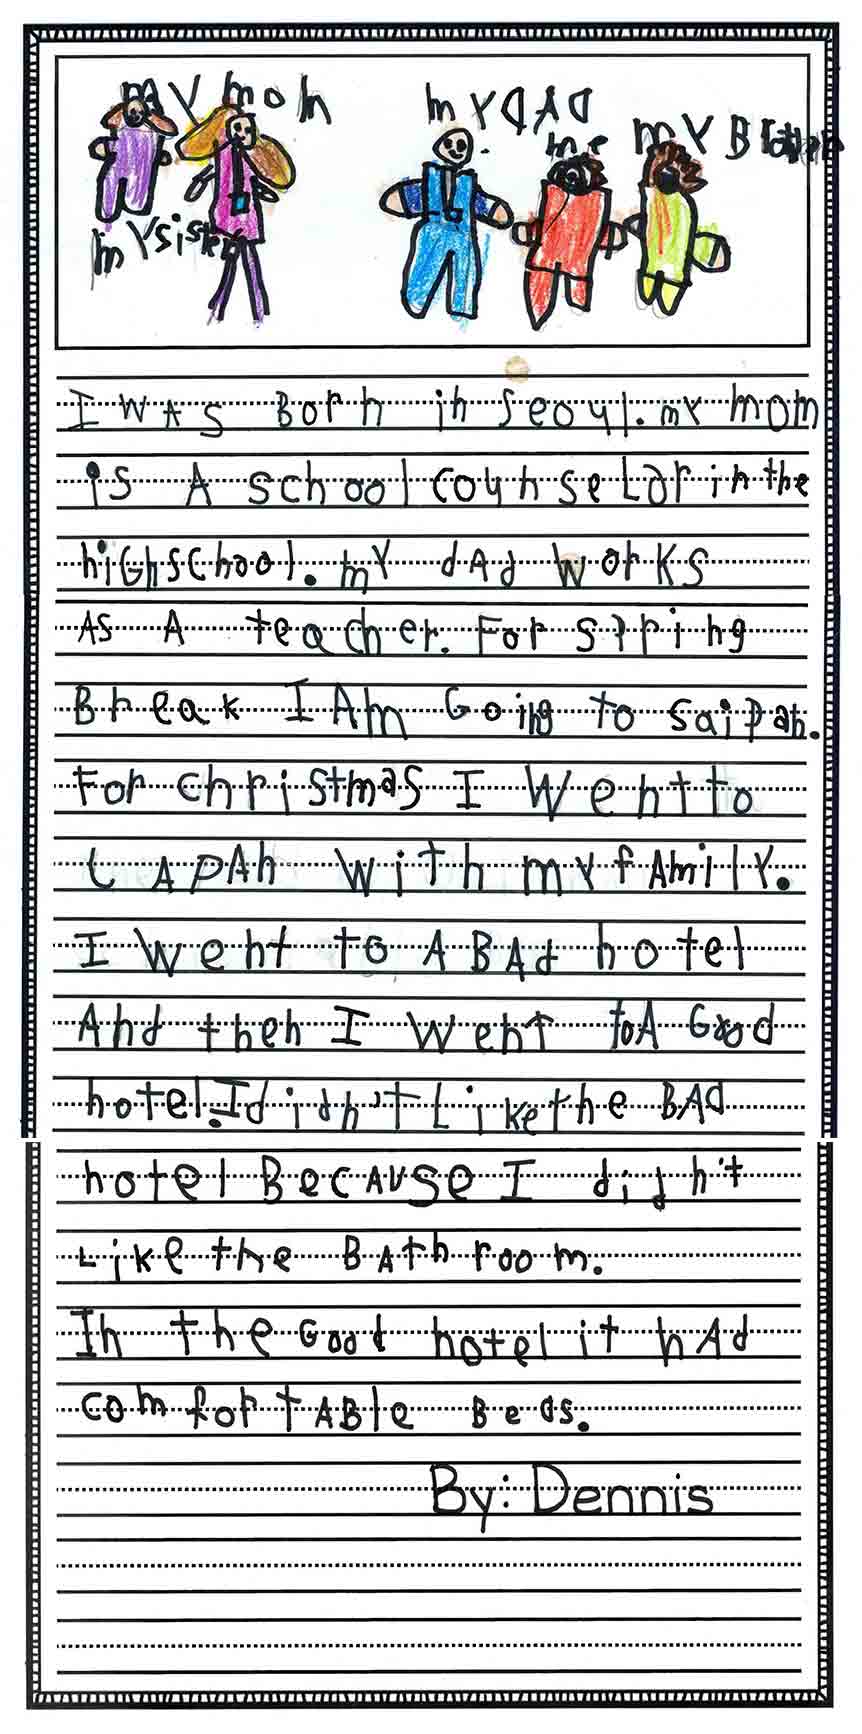 my mom
my dad
me
my Brother
my sister
I WAS Born in Seoul. my mom
is A school counselor in the
hiGh school. my dAd works
AS A teacher. For spring
Break I Am Going to saipan.
For christmas I Went to
JApAn With my fAmily.
I Went to A BAd hotel
And then I Went to A Good
hotel. I didn't Like the BAd
hotel BecAuse I didn't
Like the BAthroom.
In the Good hotel it hAd
comfortABle Beds.
By: Dennis